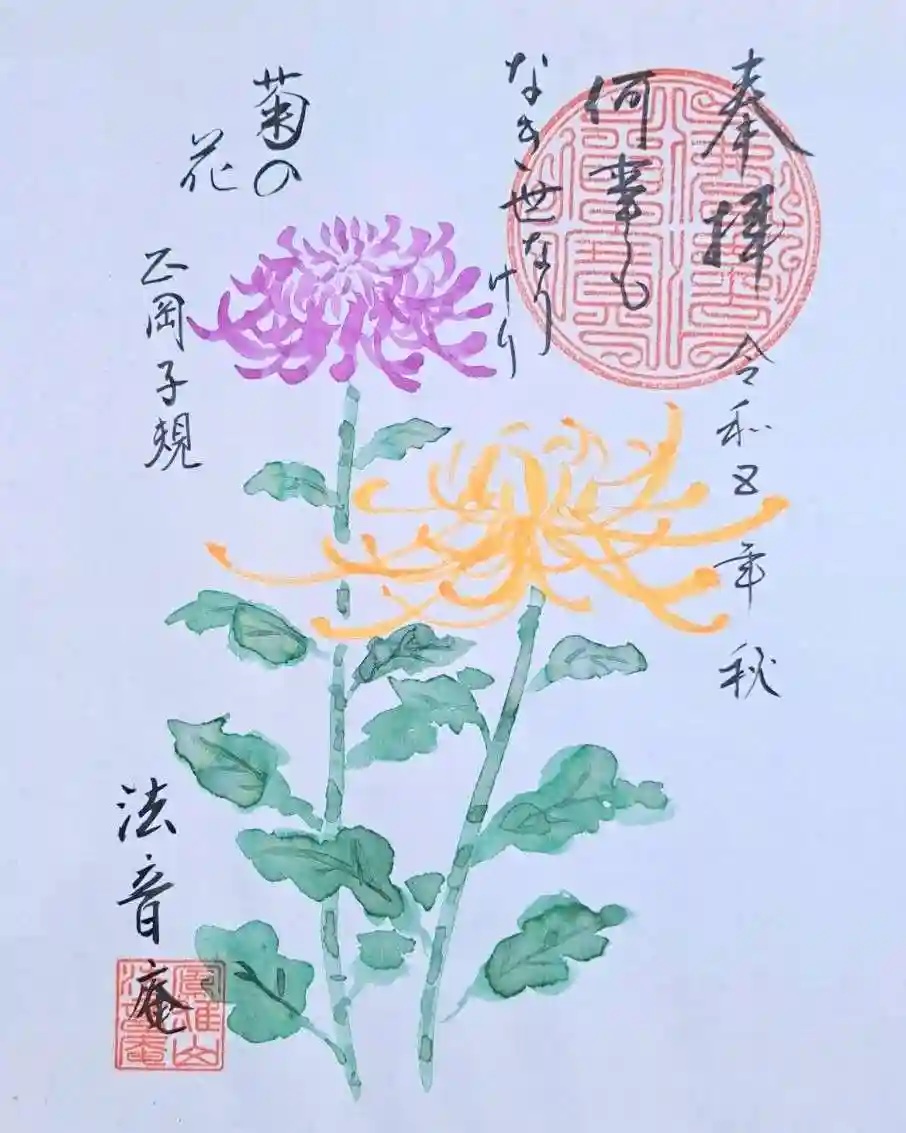 奉拝
令和五年秋
何事も
なき世なり
けり
菊の
花
正岡子規
法音庵